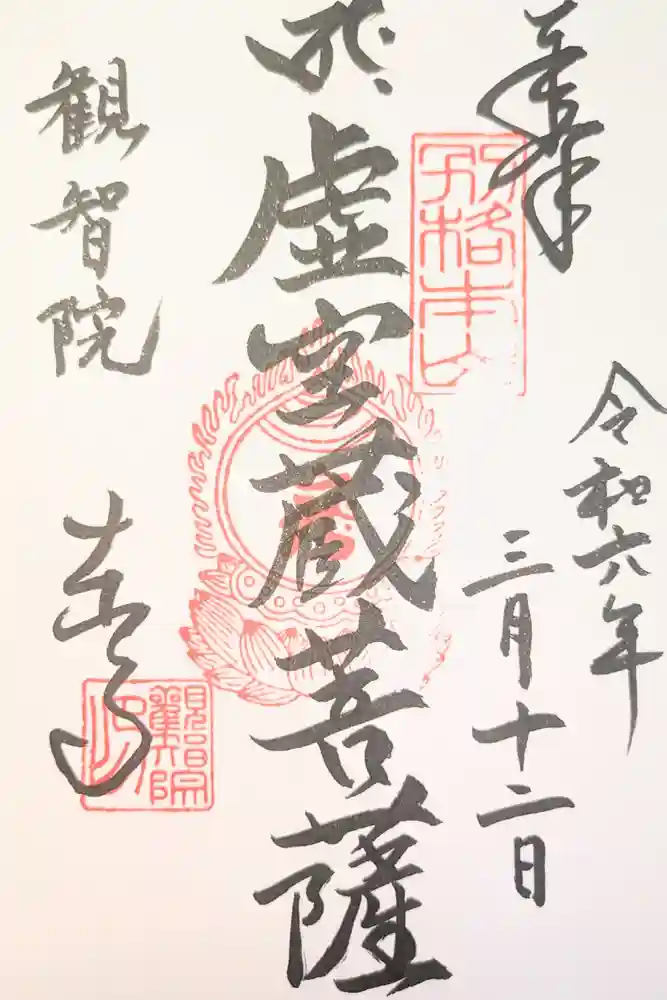 奉拝
令和六年
三月十二日
別格本山
虚空蔵菩薩
観智院
東寺
観智院印